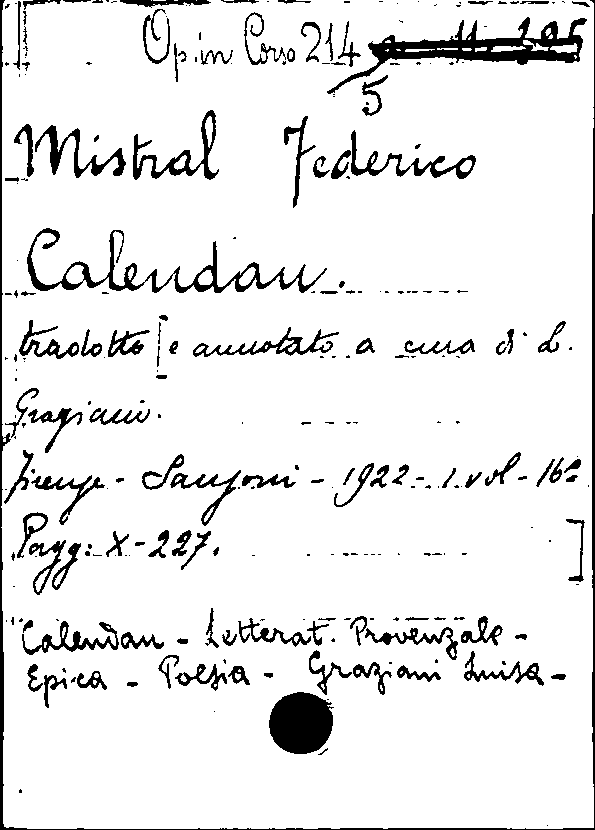 Op. in Corso 214
5
Mistral Federico
Calendau.
tradotto [e annotato a cura di L.
Graziani.
Firenze - Sansoni - 1922 - 1 vol - 16º
Pagg: X - 227. ]
Calendau - Letterat. Provenzale -
Epica - Poesia - Graziani Luisa -